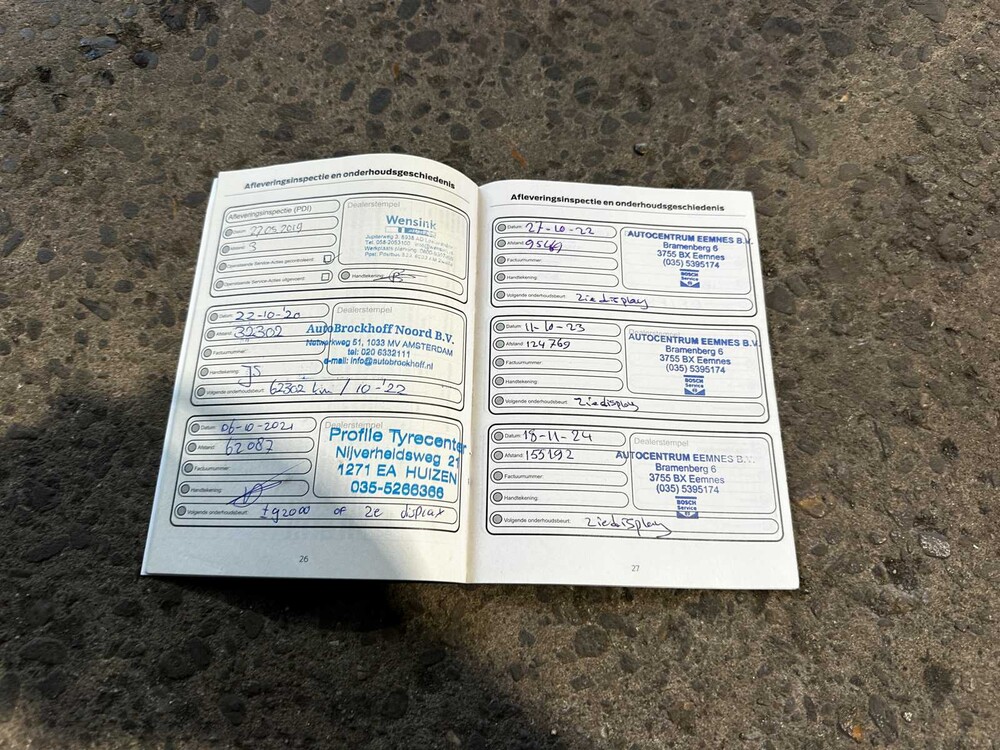 Afleveringsinspectie en onderhoudsgeschiedenis
Afleveringsinspectie (PDI)
Datum: 22.05.2019
Afstand: 3
Openstaande Service-Acties gecontroleerd:
Openstaande Service-Acties uitgevoerd:
Dealerstempel
Wensink
Handtekening:
Datum: 22-10-'20
Afstand: 32302
Factuurnummer:
Handtekening: JS
Volgende onderhoudsbeurt: 62302 km / 10-'22
Dealerstempel
AutoBrockhoff Noord B.V.
Netwerkweg 51, 1033 MV AMSTERDAM
tel: 020 6332111
e-mail: info@autobrockhoff.nl
Datum: 06-10-2021
Afstand: 62087
Factuurnummer:
Handtekening:
Volgende onderhoudsbeurt: +92000 of ze display
Dealerstempel
Profile Tyrecenter
Nijverheidsweg 21
1271 EA HUIZEN
035-5266366
26
Afleveringsinspectie en onderhoudsgeschiedenis
Datum: 27-10-22
Afstand:
Factuurnummer:
Handtekening:
Volgende onderhoudsbeurt: zie display
AUTOCENTRUM EEMNES B.V.
Bramenberg 6
3755 BX Eemnes
(035) 5395174
BOSCH
Service
Datum: 11-10-23
Afstand: 124769
Factuurnummer:
Handtekening:
Volgende onderhoudsbeurt: zie display
Dealerstempel
AUTOCENTRUM EEMNES B.V.
Bramenberg 6
3755 BX Eemnes
(035) 5395174
BOSCH
Service
Datum: 18-11-24
Afstand: 155192
Factuurnummer:
Handtekening:
Volgende onderhoudsbeurt: zie display
Dealerstempel
AUTOCENTRUM EEMNES B.V.
Bramenberg 6
3755 BX Eemnes
(035) 5395174
BOSCH
Service
27